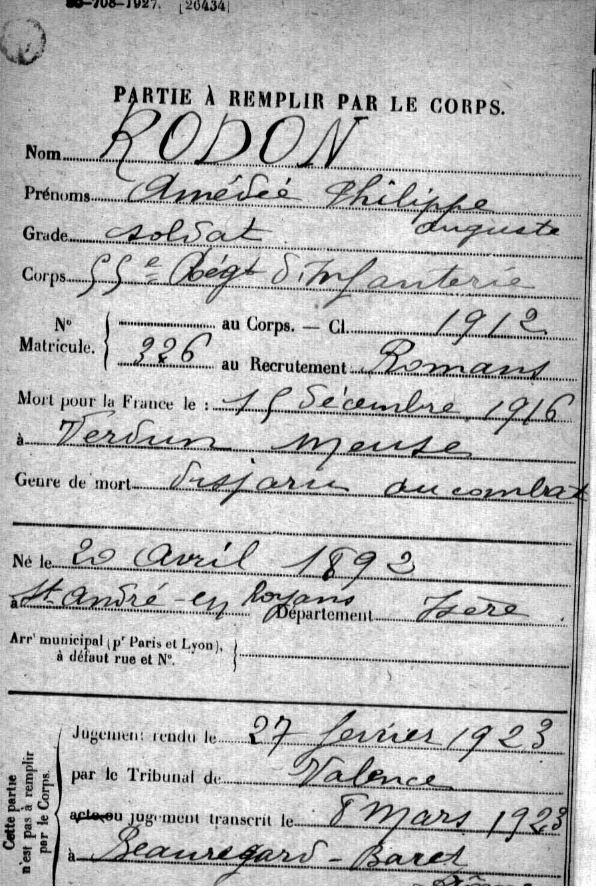 708-1927. [26434]
PARTIE À REMPLIR PAR LE CORPS.
Nom RODON
Prénoms Amédée Philippe
Auguste
Grade soldat
Corps 55e Régt d'Infanterie
No Matricule. { au Corps. — Cl. 1912
326 au Recrutement Romans
Mort pour la France le : 15 décembre 1916
à Verdun Meuse
Genre de mort disparu au combat
Né le 20 Avril 1892
à St André-en Royans Département Isère
Arrt municipal (pr Paris et Lyon), à défaut rue et No.
Cette partie n'est pas à remplir par le Corps.
Jugement rendu le 27 février 1923
par le Tribunal de Valence
acte ou jugement transcrit le 8 Mars 1923
à Beauregard - Baret
Drôme